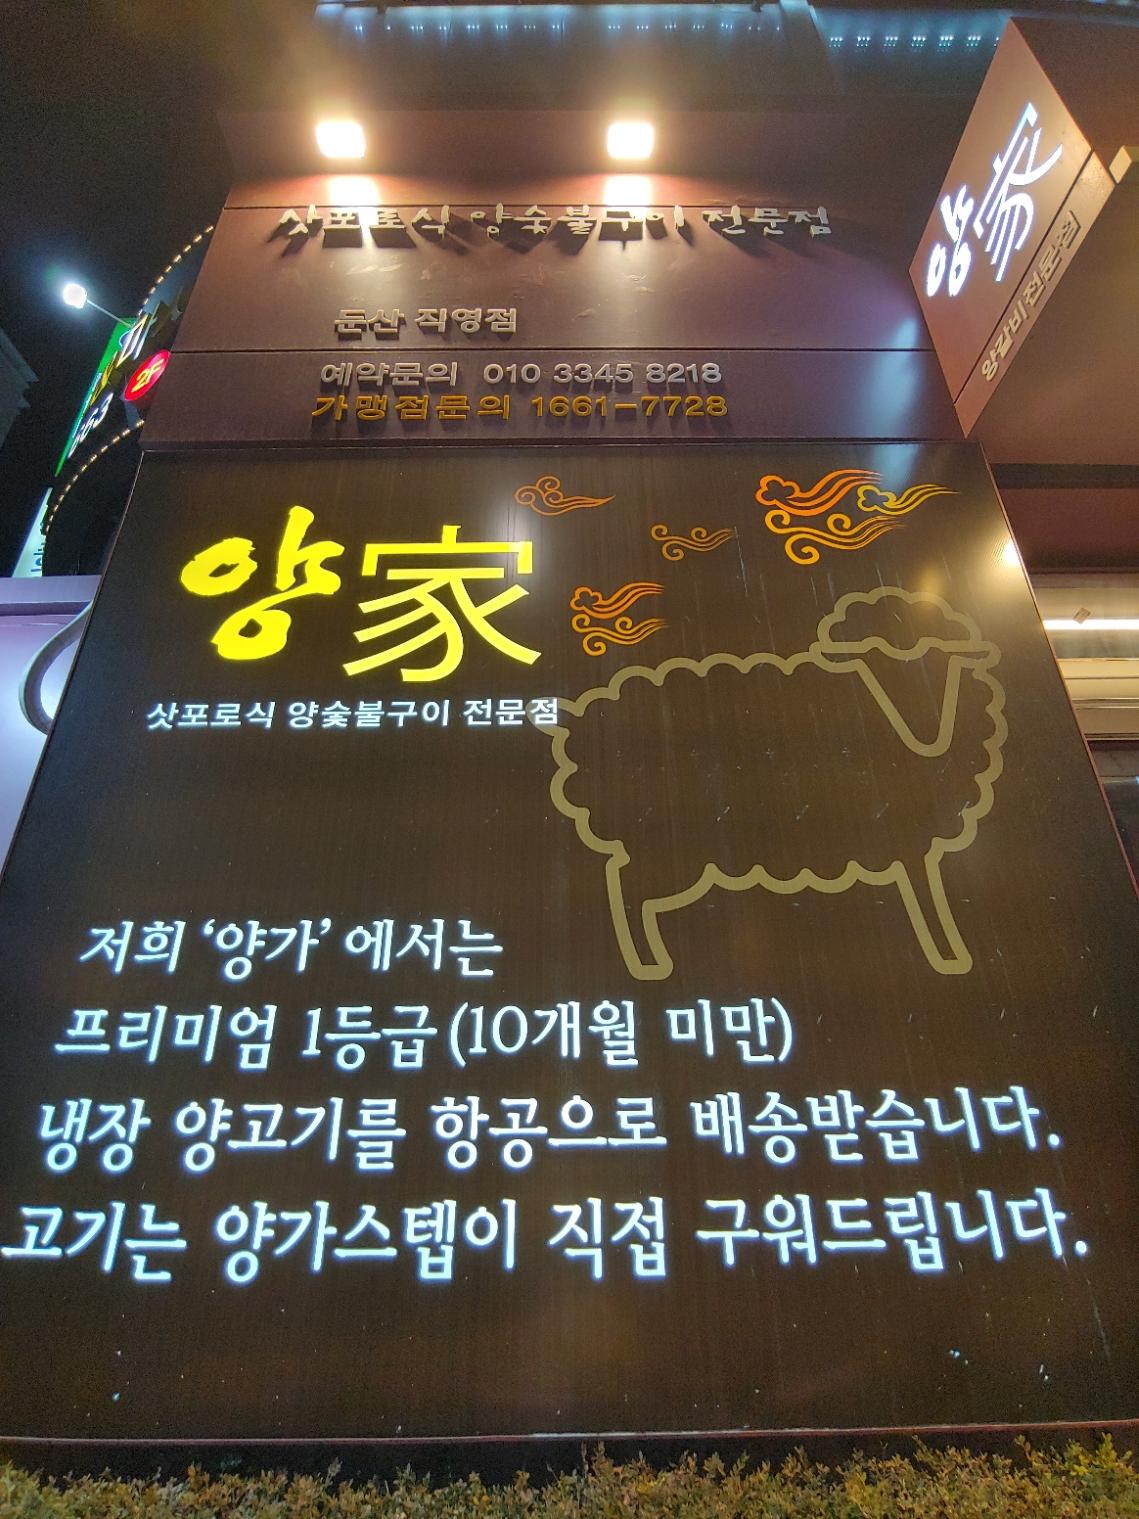 삿포로식 양숯불구이 전문점
둔산 직영점
예약문의 010 3345 8218
가맹점문의 1661-7728
양家
양갈비전문점
2F
양家
삿포로식 양숯불구이 전문점
저희 '양가' 에서는
프리미엄 1등급(10개월 미만)
냉장 양고기를 항공으로 배송받습니다.
고기는 양가스텝이 직접 구워드립니다.